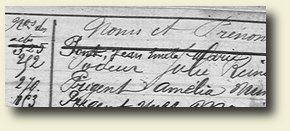 Nos des actes Noms et Prénom
325 Pont, Jean Emile Marie
252 Podeur Julie Reine
270 Prigent Amélia
163 Prigent